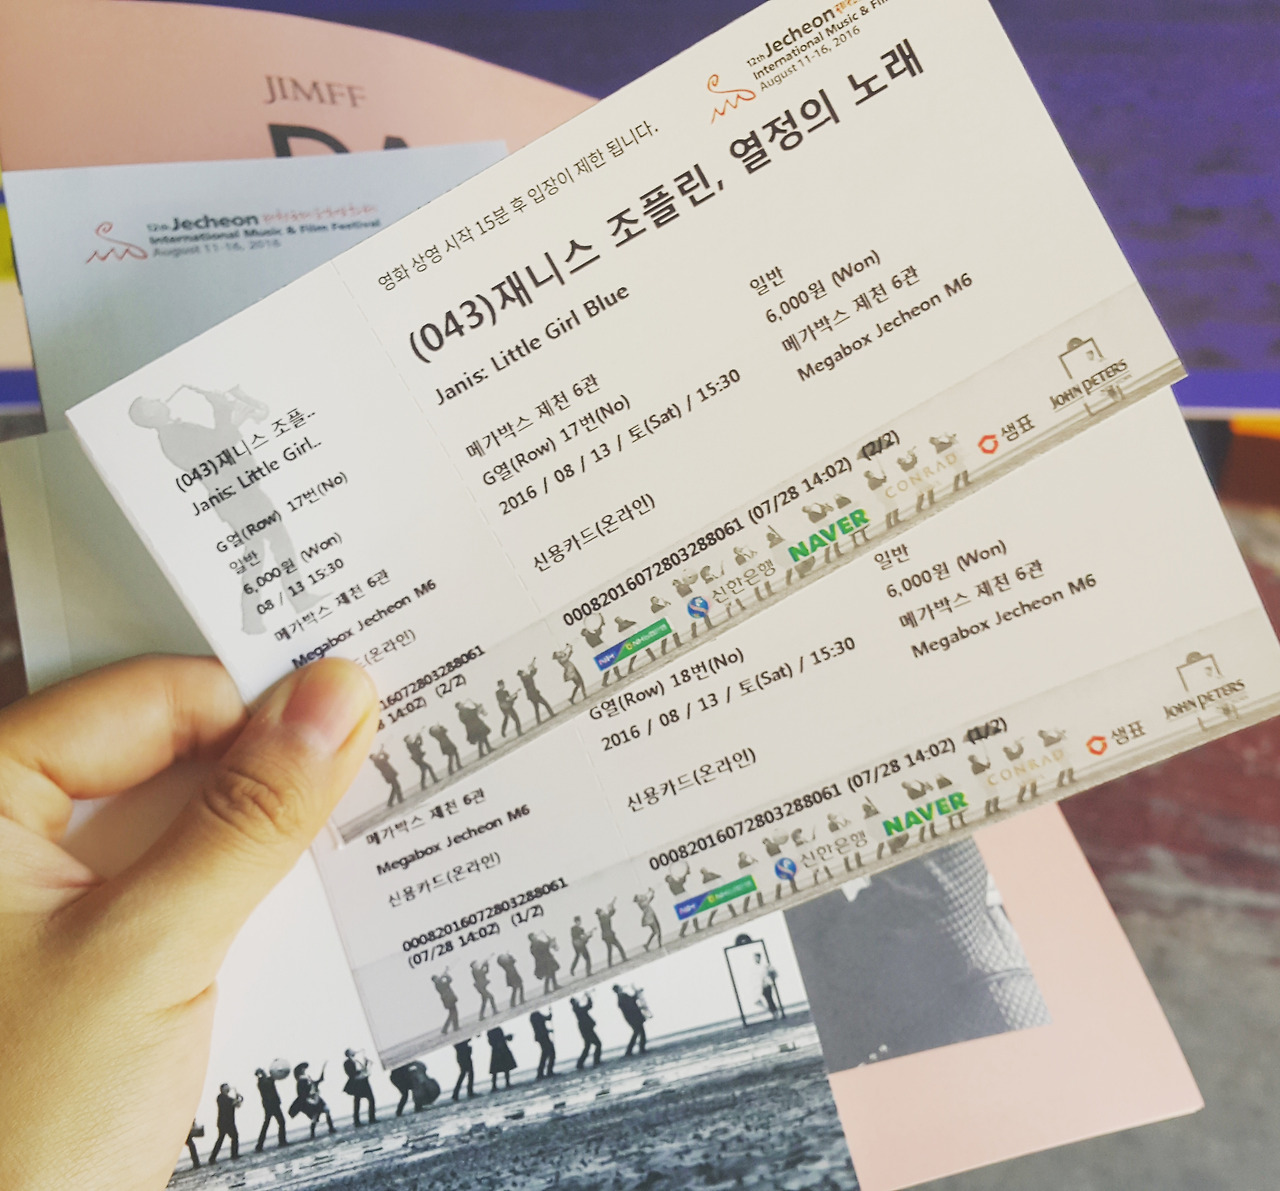 JIMFF
DA
12th Jecheon
International Music & Film Festival
August 11-16, 2016
12th Jecheon
International Music & Fil
August 11-16, 2016
영화 상영 시작 15분 후 입장이 제한 됩니다.
(043)재니스 조플린, 열정의 노래
Janis: Little Girl Blue
메가박스 제천 6관
G열(Row) 17번(No)
2016 / 08 / 13 / 토(Sat) / 15:30
신용카드(온라인)
00082016072803288061 (07/28 14:02) (2/2)
일반
6,000원 (Won)
메가박스 제천 6관
Megabox Jecheon M6
NH NH농협은행
신한은행
NAVER
CONRAD
샘표
JOHN PETERS
(043)재니스 조플..
Janis: Little Girl..
G열(Row) 17번(No)
일반
6,000원 (Won)
08 / 13 15:30
메가박스 제천 6관
Megabox Jecheon M6
(온라인)
16072803288061
8 14:02) (2/2)
G열(Row) 18번(No)
2016 / 08 / 13 / 토(Sat) / 15:30
신용카드(온라인)
00082016072803288061 (07/28 14:02) (1/2)
일반
6,000원 (Won)
메가박스 제천 6관
Megabox Jecheon M6
NH NH농협은행
신한은행
NAVER
CONRAD
샘표
JOHN PETERS
메가박스 제천 6관
Megabox Jecheon M6
신용카드(온라인)
00082016072803288061
(07/28 14:02) (1/2)